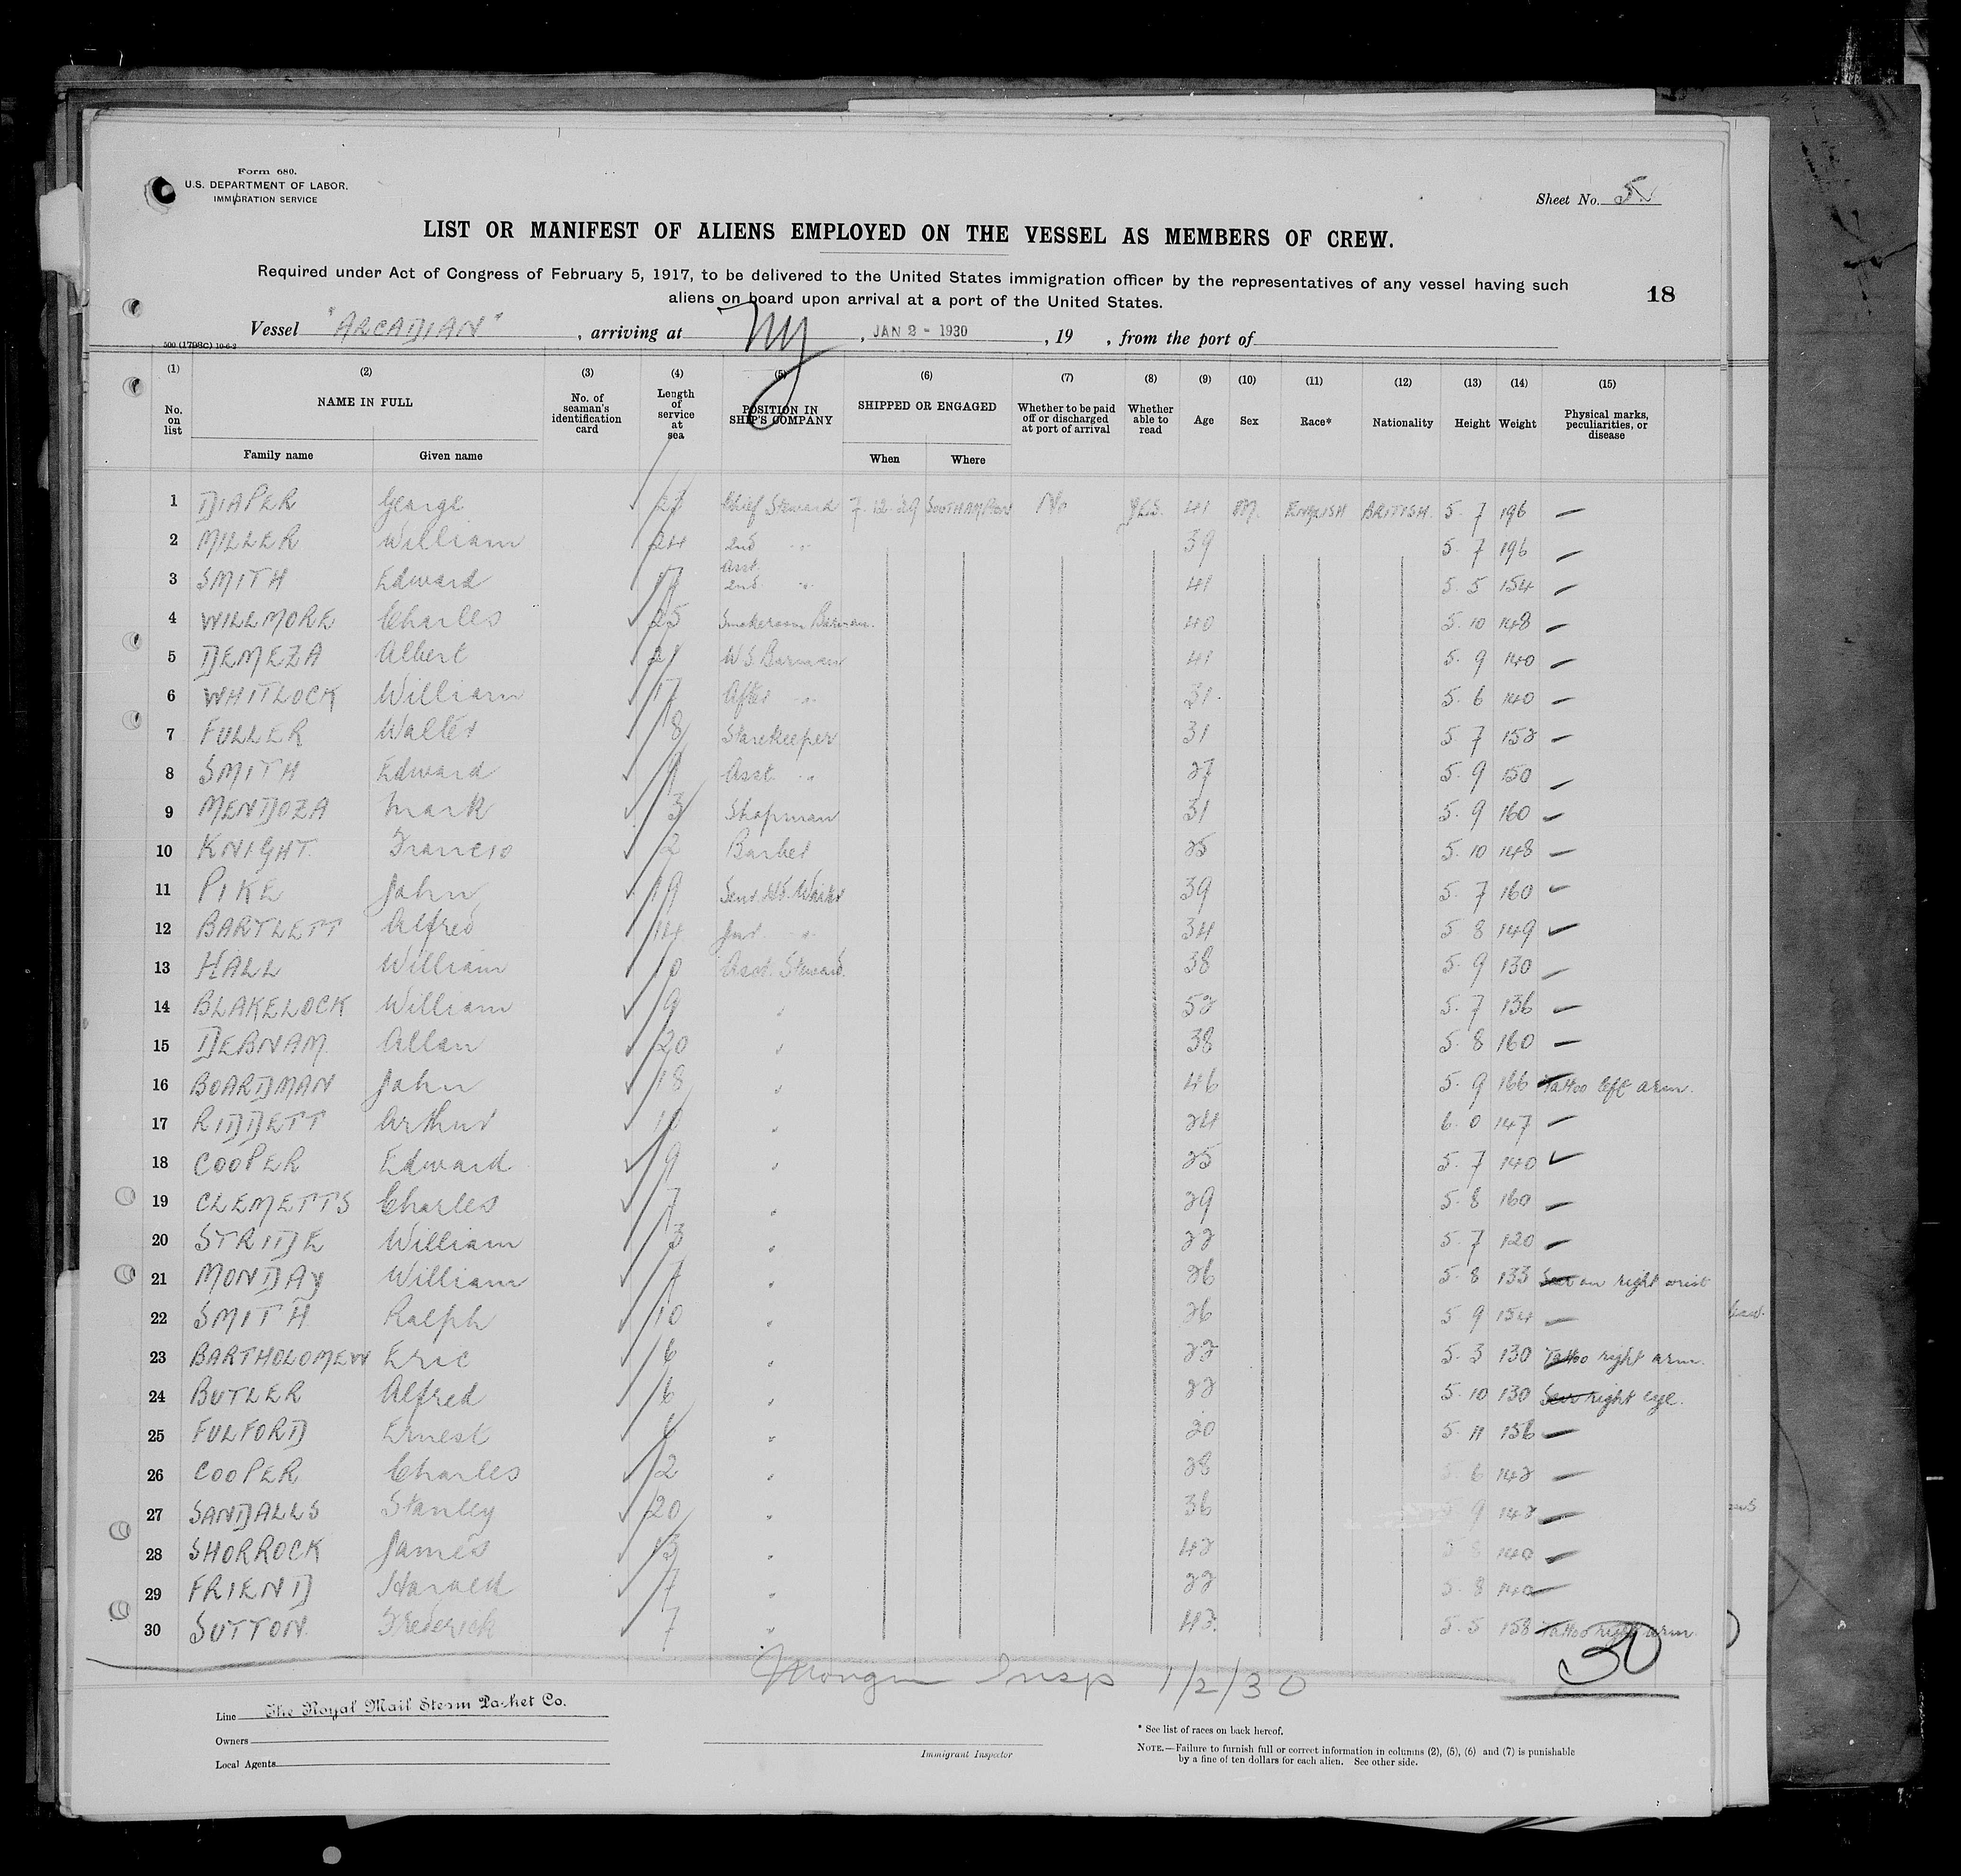 Form 680.
U.S. DEPARTMENT OF LABOR.
IMMIGRATION SERVICE
Sheet No. 5
LIST OR MANIFEST OF ALIENS EMPLOYED ON THE VESSEL AS MEMBERS OF CREW.
Required under Act of Congress of February 5, 1917, to be delivered to the United States immigration officer by the representatives of any vessel having such
aliens on board upon arrival at a port of the United States.
18
Vessel "ARCADIAN", arriving at NY, JAN 2 - 1930, 19 , from the port of
500 (1798c) 10-6-2
(1) (2) (3) (4) (5) (6) (7) (8) (9) (10) (11) (12) (13) (14) (15)
No. on list NAME IN FULL No. of seaman's identification card Length of service at sea POSITION IN SHIP'S COMPANY SHIPPED OR ENGAGED Whether to be paid off or discharged at port of arrival Whether able to read Age Sex Race* Nationality Height Weight Physical marks, peculiarities, or disease
Family name Given name When Where
1 DIAPER George Chief Steward 7.12.29 SOUTHAMPTON No YES. 41 M. ENGLISH BRITISH. 5 7 196 —
2 MILLER William 24 2nd " 39 5. 7 196 —
3 SMITH Edward Asst. 2nd " 41 5. 5 154 —
4 WILLMORE Charles 25 Smokeroom Barman. 40 5. 10 148 —
5 DEMEZA Albert 21 W.S. Barman 41 5. 9 140 —
6 WHITLOCK William 17 After " 31. 5. 6 140 —
7 FULLER Walter 8 Storekeeper 31 5 7 152 —
8 SMITH Edward Asst. " 27 5. 9 150 —
9 MENDOZA Mark 3 Shopman 31 5. 9 160 —
10 KNIGHT. Francis 2 Barber 25 5. 10 148 —
11 PIKE John 19 39 5. 7 160
12 BARTLETT Alfred 14 " 34 5 8 149
13 HALL William 10 Asst. Steward. 38 5. 9 130 —
14 BLAKELOCK William 9 " 52 5. 7 136 —
15 DEBNAM. Allan 20 " 38 5. 8 160 —
16 BOARDMAN John 18 " 46 5. 9 166 Tattoo left arm.
17 RIDDETT Arthur 10 " 24 6. 0 147 —
18 COOPER Edward 9 " 25 5. 7 140
19 CLEMETTS Charles 7 " 29 5. 8 160 —
20 STRIDE William 3 " 22 5. 7 120 —
21 MONDAY William " 26 5. 8 133 Scar on right wrist
22 SMITH Ralph 10 " 26 5 9 154 —
23 BARTHOLOMEW Eric 6 " 22 5. 3 130 Tattoo right arm.
24 BUTLER Alfred 6 " 22 5. 10 130 Scar right eye.
25 FULFORD Ernest " 20 5. 11 156 —
26 COOPER Charles 2 " 28 5. 6 142 —
27 SANDALLS Stanley 20 " 36 9 142 —
28 SHORROCK James 13 " 42 5 8 140 —
29 FRIEND Harold 7 " 22 5. 8 140 —
30 SUTTON. Frederick 7 " 43. 5. 5 158 Tattoo right arm
30
Insp 1/2/30
Line The Royal Mail Steam Packet Co.
Owners
Local Agents
Immigrant Inspector
* See list of races on back hereof.
NOTE.—Failure to furnish full or correct information in columns (2), (5), (6) and (7) is punishable
by a fine of ten dollars for each alien. See other side.